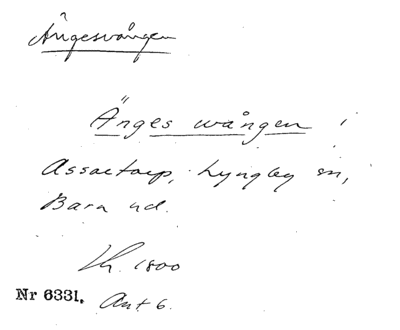 Ängesvången
Änges wången i
Assartorp, Lyngby sn,
Bara hd.
Lh. 1800
Nr 6331. Ant 6.